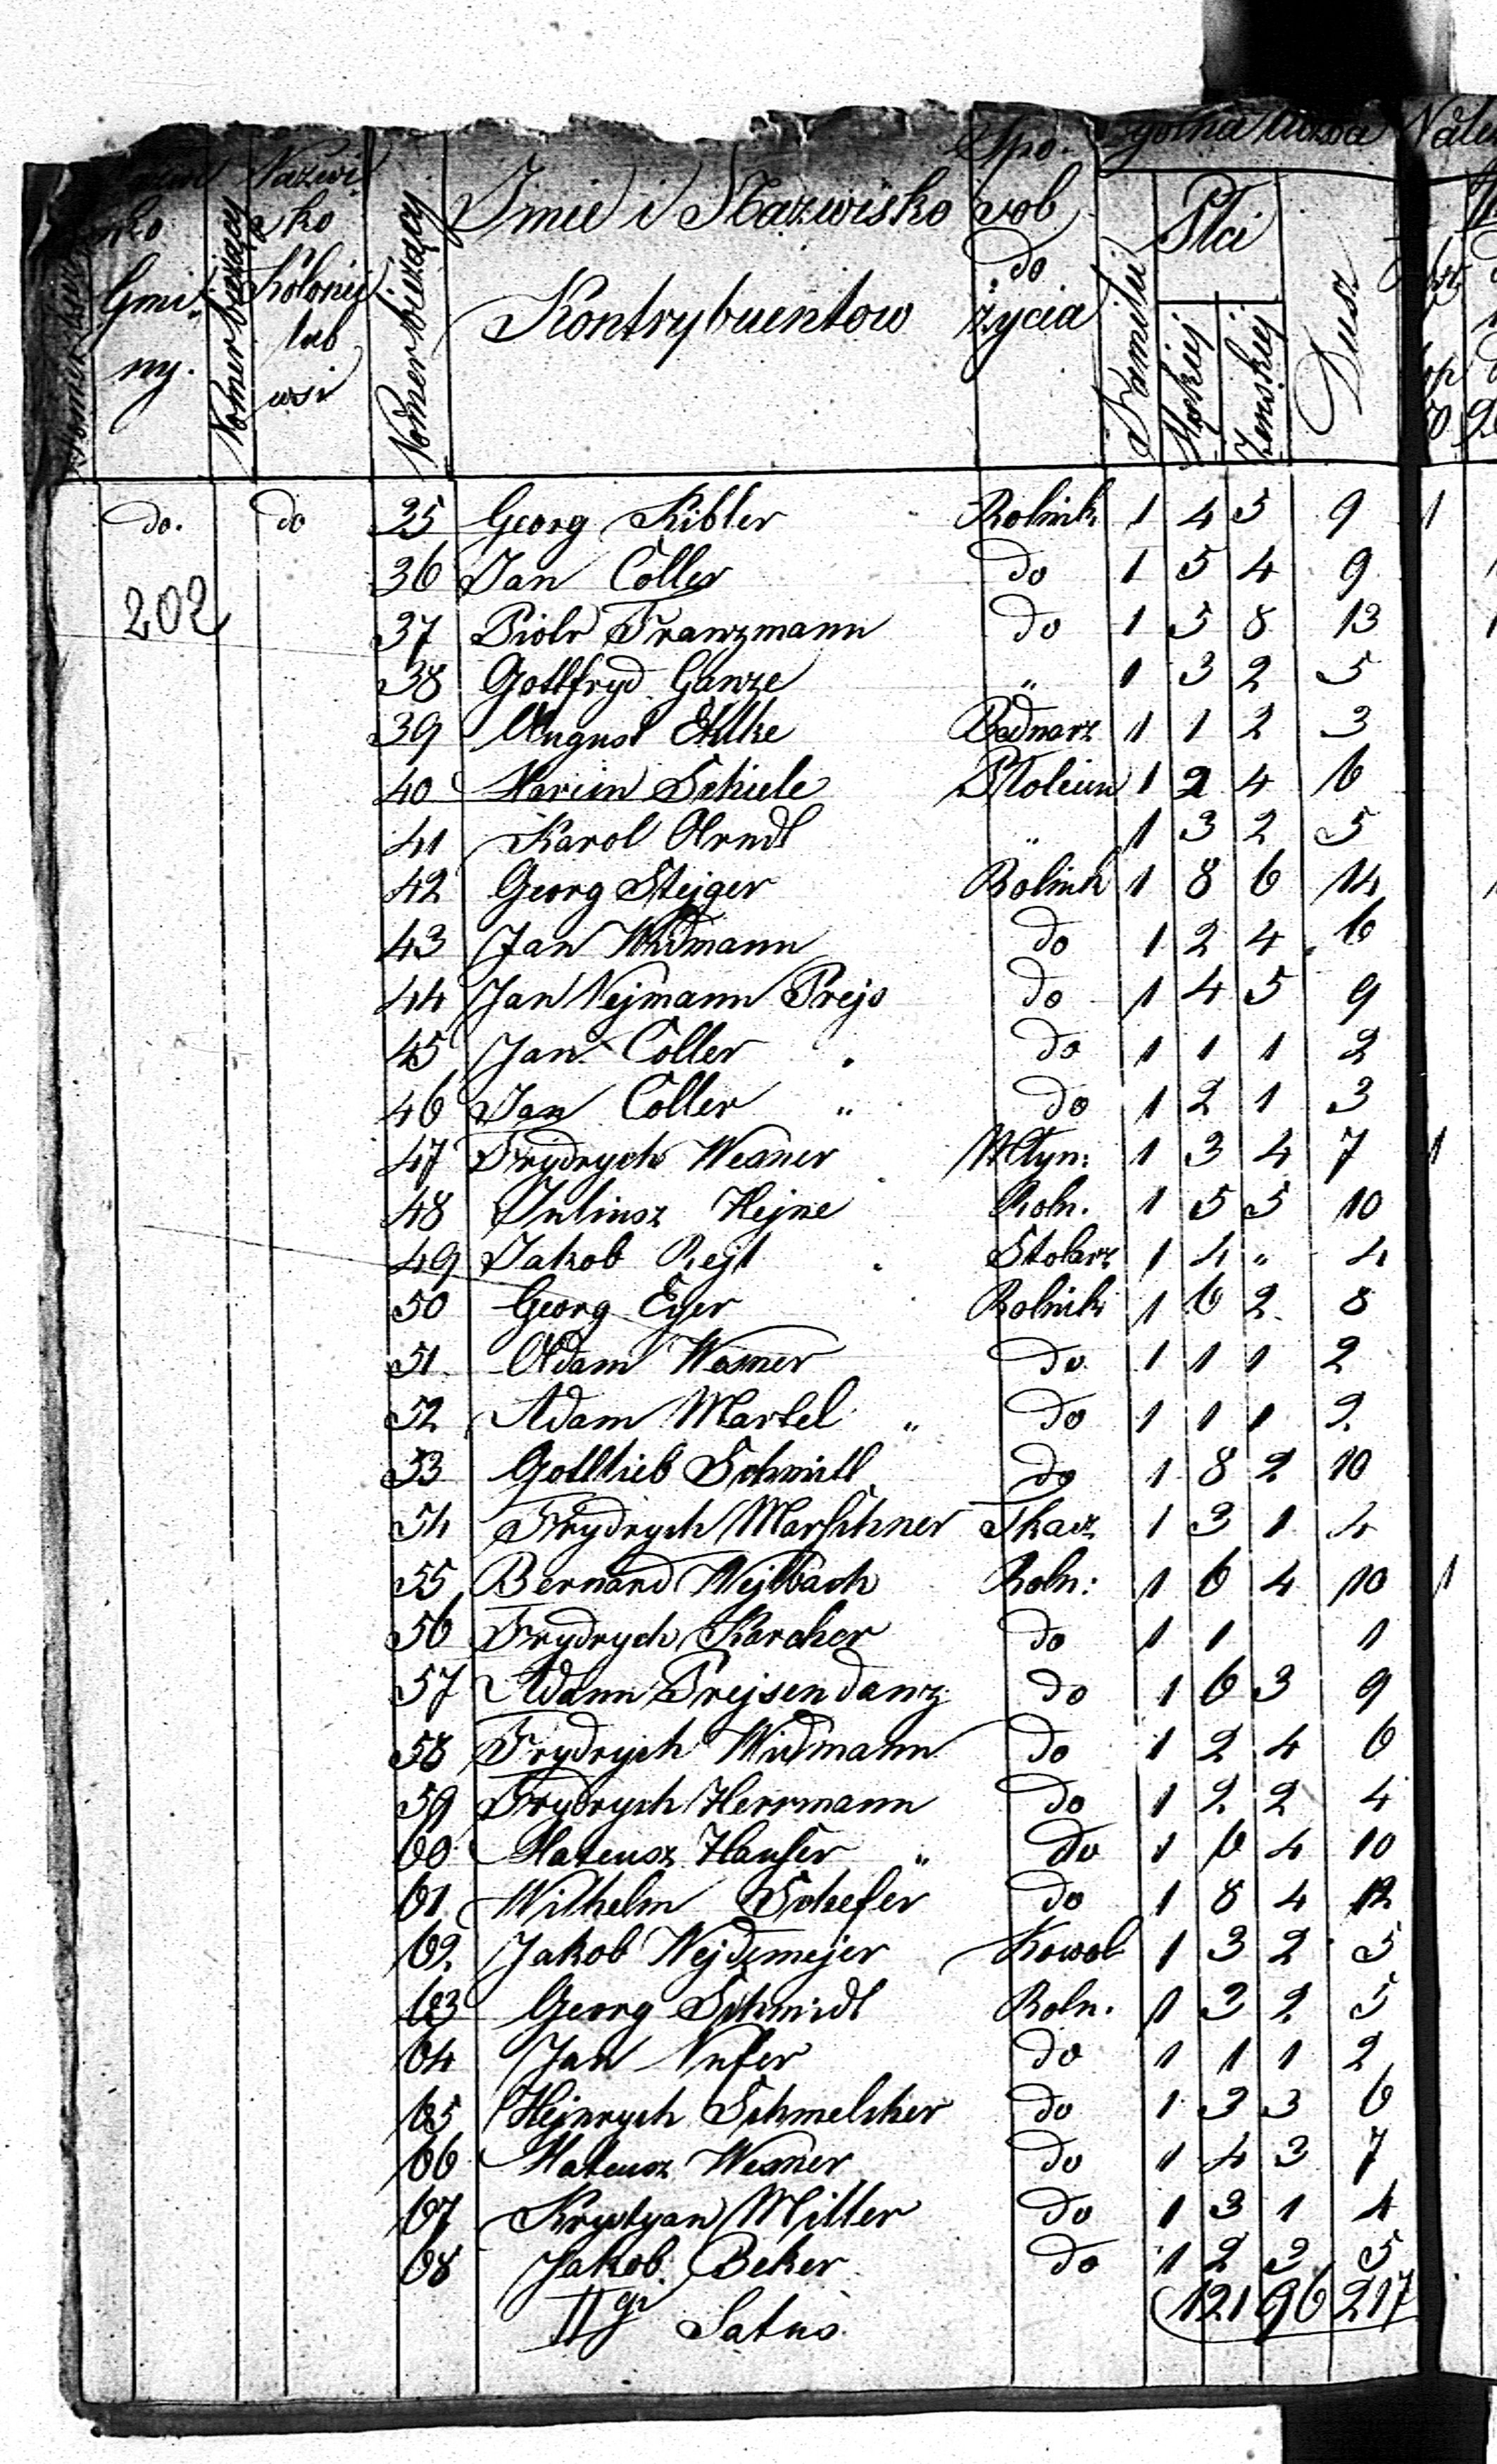 Nazwi
sko
Kolonij
lub
wsi
Gmi-
ny.
Nomer bieżący
Nomer bieżący
Imie i Nazwisko
Kontrybuentow
Spo-
sob
do
życia
Familii
Płci
Męskiej
Żenskiej
Dusz
do. do 35 Georg Kibler Rolnik 1 4 5 9 1
36 Jan Coller do 1 5 4 9
202
37 Piotr Franzmann do 1 5 8 13
38 Gottfryd Ganze " 1 3 2 5
39 August Ehlke Bednarz 1 1 2 3
40 Marcin Schiele 1 2 4 6
41 Karol Arndt " 1 3 2 5
42 Georg Stejger Rolnik 1 8 6 14
43 Jan Widmann do 1 2 4 6
44 Jan Nejmann Prejs do 1 4 5 9
45 Jan Coller do 1 1 1 2
46 Jan Coller " do 1 2 1 3
47 Frydrych Wesner Młyn: 1 3 4 7 1
48 Juliusz Hejne Roln. 1 5 5 10
49 Jakob Rejt Stolarz 1 4 " 4
50 Georg Eyer Rolnik 1 6 2 8
51 Adam Wesner do 1 1 1 2
52 Adam Martel " do 1 1 1 2
53 Gottlieb Schmitt do 1 8 2 10
54 Frydrych Marschner Tkacz 1 3 1 4
55 Bernard Wejlbach Roln: 1 6 4 10 1
56 Frydrych Karcher do 1 1 1
57 Adam Prejsendanz do 1 6 3 9
58 Frydrych Widmann do 1 2 4 6
59 Frydrych Herrmann do 1 2 2 4
60 Mateusz Hauser " do 1 6 4 10
61 Wilhelm Schefer do 1 8 4 12
62 Jakob Wejdemejer Kowal 1 3 2 5
63 Georg Schmidt Roln. 1 3 2 5
64 Jan Nufer do 1 1 1 2
65 Hejnrych Schmelcher do 1 3 3 6
66 Mateusz Wesner do 1 4 3 7
67 Krystyan Miller do 1 3 1 4
68 Jakob Beker do 1 2 3 5
Latus 121 96 217